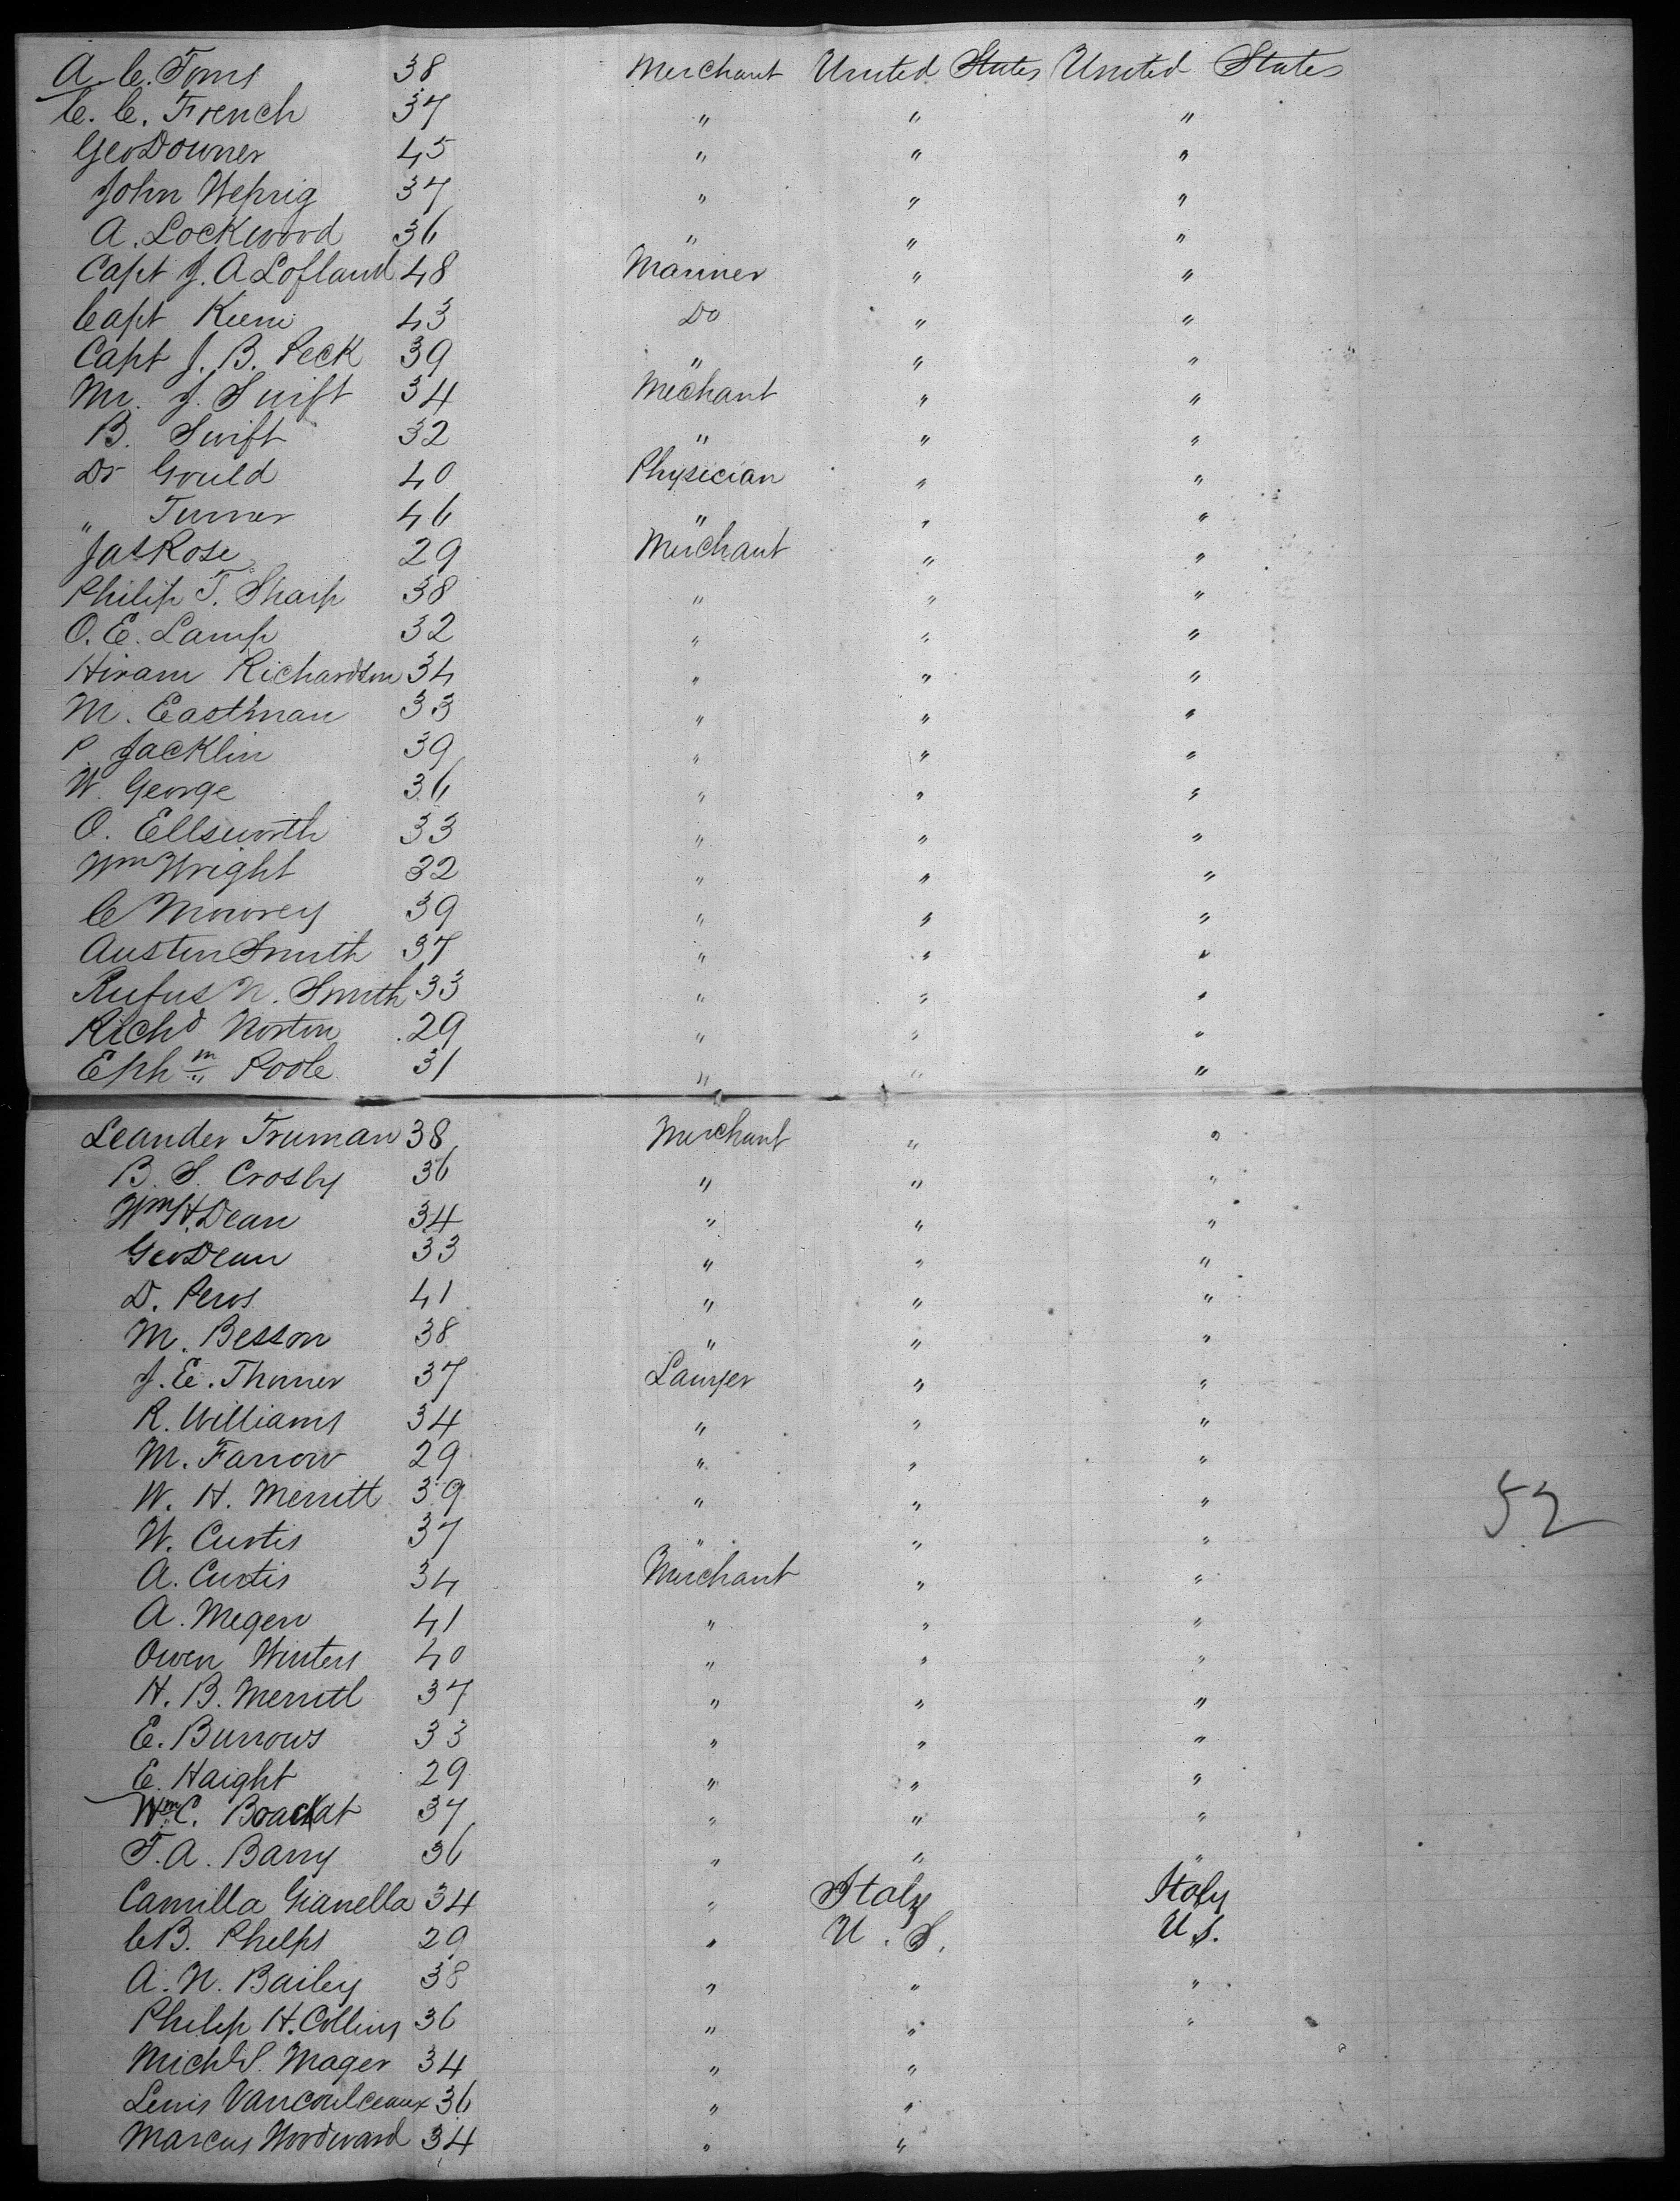 A. C. Toms 38 Merchant United States United States
C. C. French 37 " " "
Geo Downer 45 " " "
John Wehrig 37 " " "
A. Lockwood 36 " " "
Capt J. A Lofland 48 Mariner " "
Capt 43 Do " "
Capt J. B. Peck 39 " " "
Mr. J. Swift 34 Mechant " "
B. Swift 32 " " "
Dr Gould 40 Physician " "
" Turner 46 " " "
Jas Rose 29 Merchant " "
Philip T. Sharp 38 " " "
O. E. Lamp 32 " " "
Hiram Richardson 34 " " "
M. Eastman 33 " " "
P. Jacklin 39 " " "
W. George 36 " " "
O. Ellsworth 33 " " "
Wm Wright 32 " " "
C Mowrey 39 " " "
Austin Smith 37 " " "
Rufus N. Smith 33 " " "
Richd Norton 29 " " "
Ephm Poole 31 " " "
Leander Truman 38 Merchant " "
B. S. Crosby 36 " " "
Wm H. Dean 34 " " "
Geo Dean 33 " " "
D. 41 " " "
M. Besson 38 " " "
J. E. 37 Lawyer " "
R. Williams 34 " " "
M. Farrow 29 " " "
W. H. Merritt 39 " " "
52
W. Curtis 37 " " "
A. Curtis 34 Merchant " "
A. Megen 41 " " "
Owen Winters 40 " " "
H. B. Merritt 37 " " "
E. Burrows 33 " " "
E. Haight 29 " " "
Wm C. 37 " " "
T. A. Barry 36 " " "
Camilla Gianella 34 " Italy Italy
C B. Phelps 29 " U. S. U S.
A. N. Bailey 38 " " "
Philip H. Collins 36 " " "
Michl S. Mager 34 " "
Lewis 36 " "
Marcus Woodward 34 " "